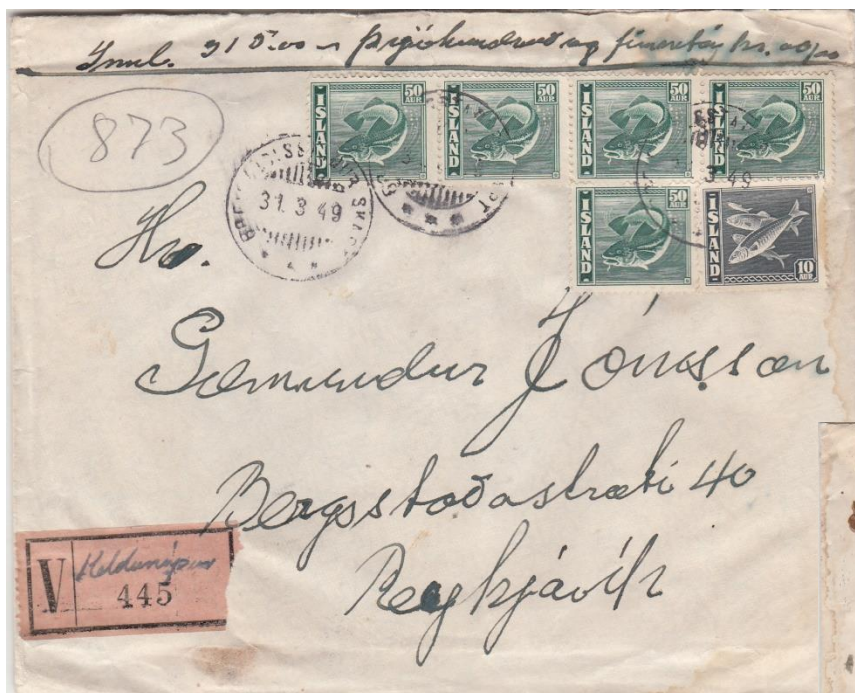 Innl. 315.00 - þrjúhundruð og fimmtán kr. 00/00
873
50 AUR ÍSLAND
50 AUR ÍSLAND
50 AUR ÍSLAND
50 AUR ÍSLAND
50 AUR ÍSLAND
10 AUR ÍSLAND
31.3.49
3 49
Hr.
Jónsson
Bergsstaðastræti 40
Reykjavík
V
445